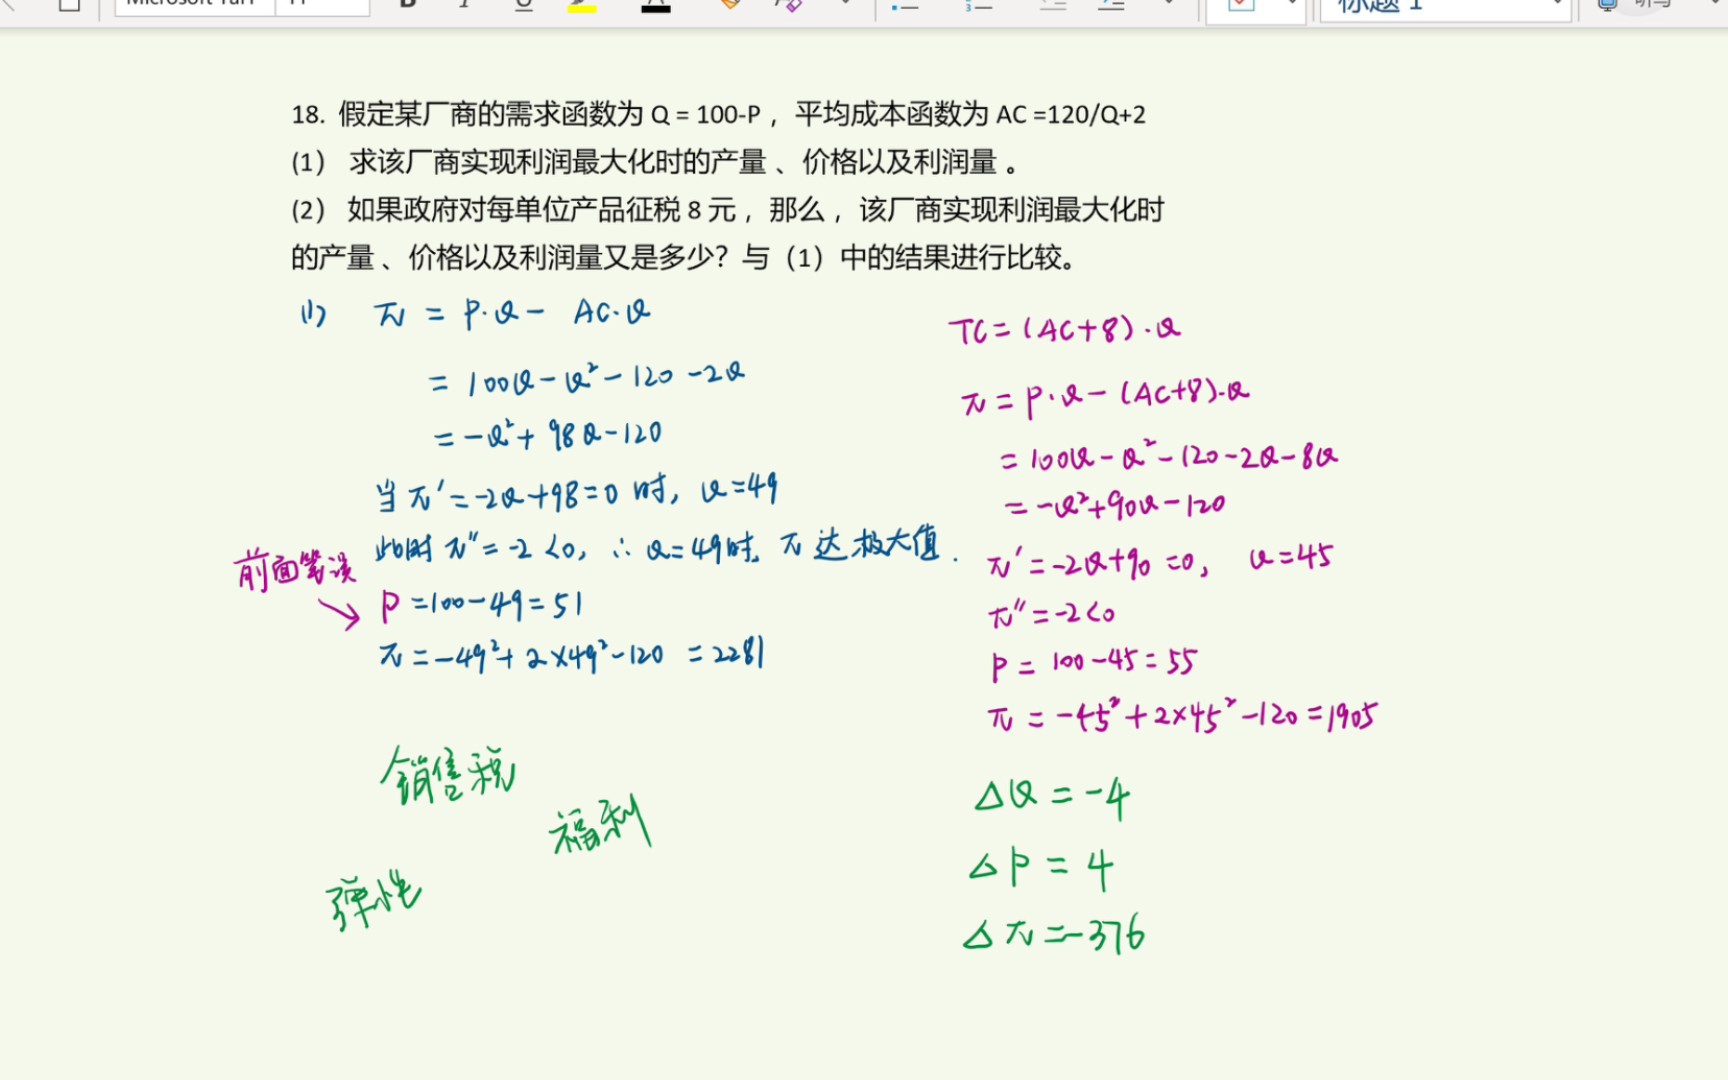 标题 1
18. 假定某厂商的需求函数为 Q = 100-P ，平均成本函数为 AC =120/Q+2
(1） 求该厂商实现利润最大化时的产量 、价格以及利润量 。
(2） 如果政府对每单位产品征税 8 元 ，那么 ，该厂商实现利润最大化时
的产量 、价格以及利润量又是多少？与（1）中的结果进行比较。
(1) π = P·Q - AC·Q
= 100Q - Q² - 120 - 2Q
= -Q² + 98Q - 120
当 π' = -2Q + 98 = 0 时, Q = 49
此时 π'' = -2 < 0, ∴ Q = 49时, π 达极大值.
前面笔误
P = 100 - 49 = 51
π = -49² + 2×49² - 120 = 2281
销售税
福利
弹性
TC = (AC+8)·Q
π = P·Q - (AC+8)·Q
= 100Q - Q² - 120 - 2Q - 8Q
= -Q² + 90Q - 120
π' = -2Q + 90 = 0, Q = 45
π'' = -2 < 0
P = 100 - 45 = 55
π = -45² + 2×45² - 120 = 1905
ΔQ = -4
ΔP = 4
Δπ = -376